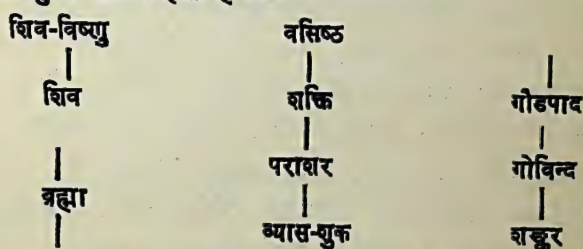 शिव-विष्णु
शिव
ब्रह्मा
वसिष्ठ
शक्ति
पराशर
व्यास-शुक
गौडपाद
गोविन्द
शङ्कर